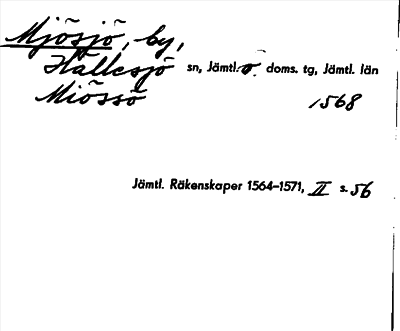 Mjösjö, by,
Hällesjö sn, Jämtl. ö. doms. tg, Jämtl. län
Miössö 1568
Jämtl. Räkenskaper 1564–1571, II s. 56